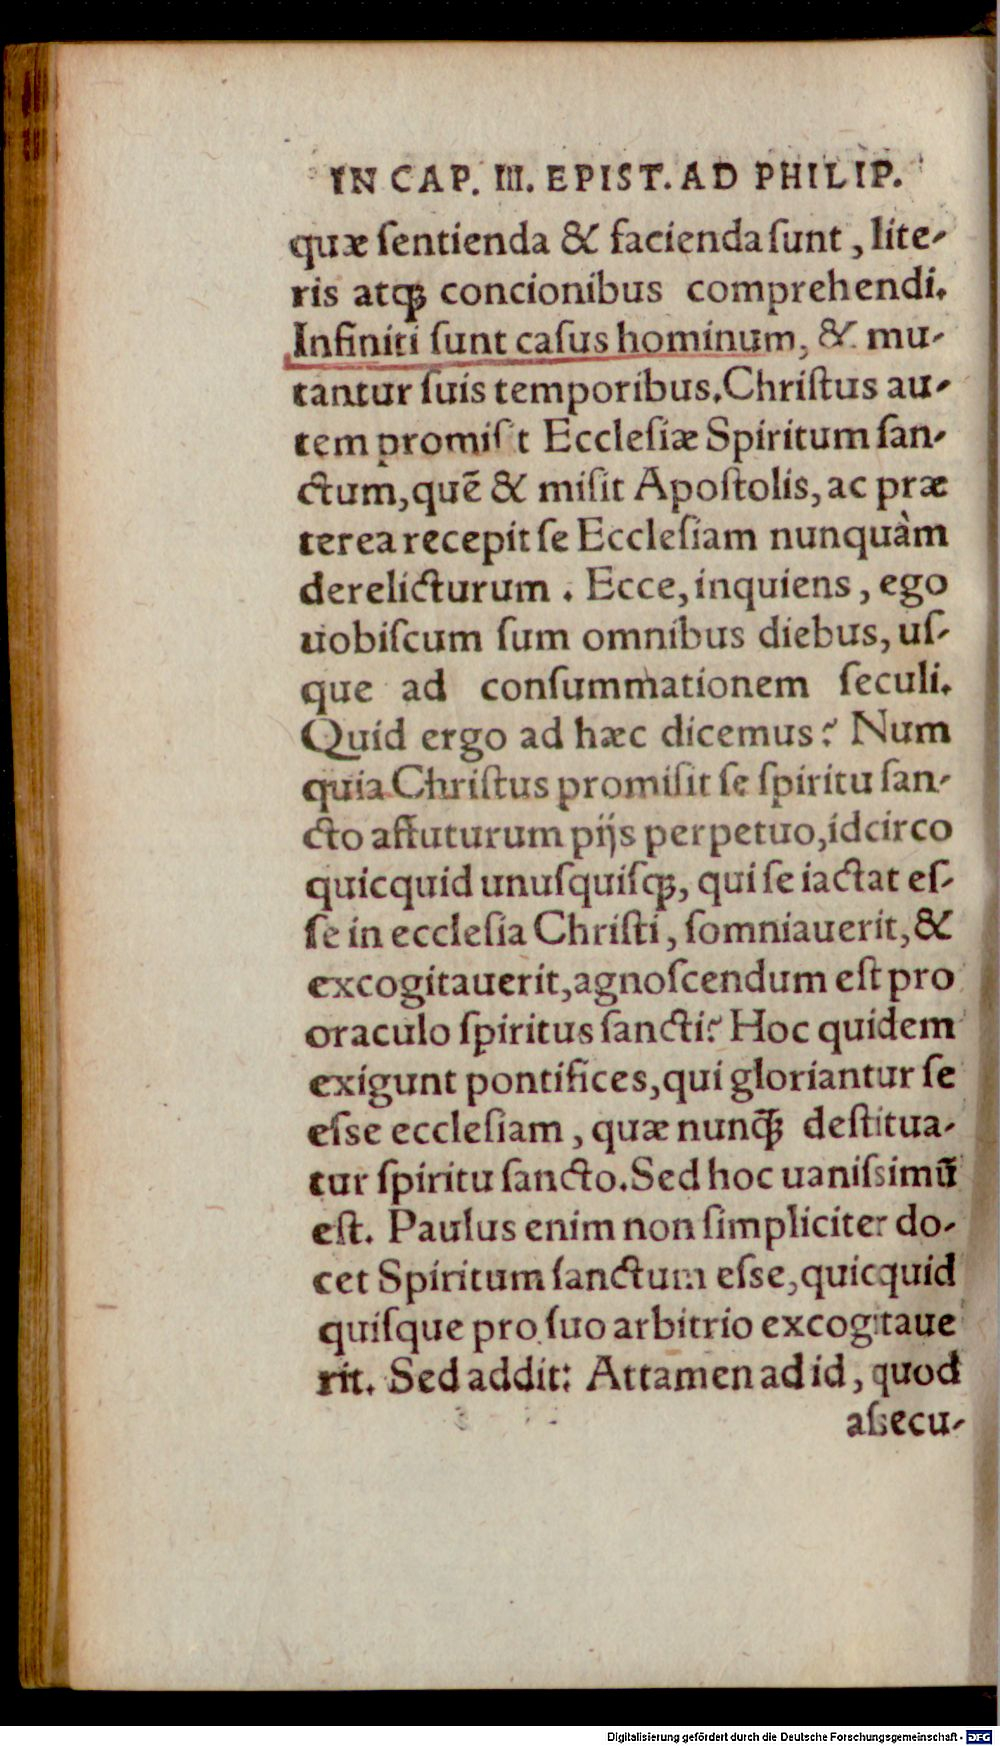 IN CAP. III. EPIST. AD PHILIP.
quæ ſentienda & facienda ſunt, lite-
ris atqꝫ concionibus comprehendi.
Infiniti ſunt caſus hominum, & mu-
tantur ſuis temporibus. Chriſtus au-
tem promiſit Eccleſiæ Spiritum ſan-
ctum, quẽ & miſit Apoſtolis, ac præ
terea recepit ſe Eccleſiam nunquàm
derelicturum. Ecce, inquiens, ego
uobiſcum ſum omnibus diebus, uſ-
que ad conſummationem ſeculi.
Quid ergo ad hæc dicemus? Num
quia Chriſtus promiſit ſe ſpiritu ſan-
cto affuturum pijs perpetuo, idcirco
quicquid unuſquiſqꝫ, qui ſe iactat eſ-
ſe in eccleſia Chriſti, ſomniauerit, &
excogitauerit, agnoſcendum eſt pro
oraculo ſpiritus ſancti? Hoc quidem
exigunt pontifices, qui gloriantur ſe
eſse eccleſiam, quæ nunq̃ꝫ deſtitua-
tur ſpiritu ſancto. Sed hoc uaniſsimũ
eſt. Paulus enim non ſimpliciter do-
cet Spiritum ſanctum eſse, quicquid
quiſque pro ſuo arbitrio excogitaue
rit. Sed addit: Attamen ad id, quod
aſsecu-
Digitalisierung gefördert durch die Deutsche Forschungsgemeinschaft - DFG